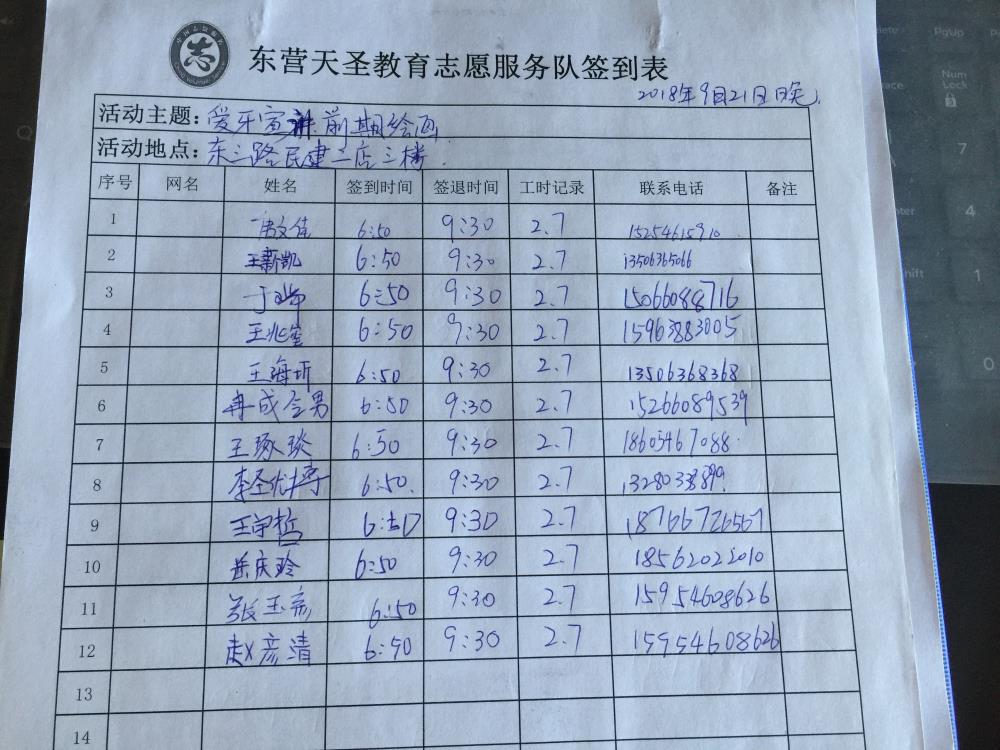 东营天圣教育志愿服务队签到表
2018年9月21日
活动主题：爱牙宣讲前期绘画
活动地点：东三路民建二店三楼
序号 网名 姓名 签到时间 签退时间 工时记录 联系电话 备注
1 6:50 9:30 2.7 15254615910
2 王新凯 6:50 9:30 2.7 13506365066
3 6:50 9:30 2.7 15066088716
4 王兆 6:50 9:30 2.7 15963883005
5 王海 6:50 9:30 2.7 13506368368
6 冉成全男 6:50 9:30 2.7 15266089539
7 王琢琰 6:50 9:30 2.7 18605467088
8 李圣 6:50 9:30 2.7
9 王宇哲 6:50 9:30 2.7
10 岳庆玲 6:50 9:30 2.7 18562022010
11 张玉 6:50 9:30 2.7 15954608626
12 赵彦清 6:50 9:30 2.7 15954608626
13
14
PgUp
PgDn
Num
Lock
7
4
1
0